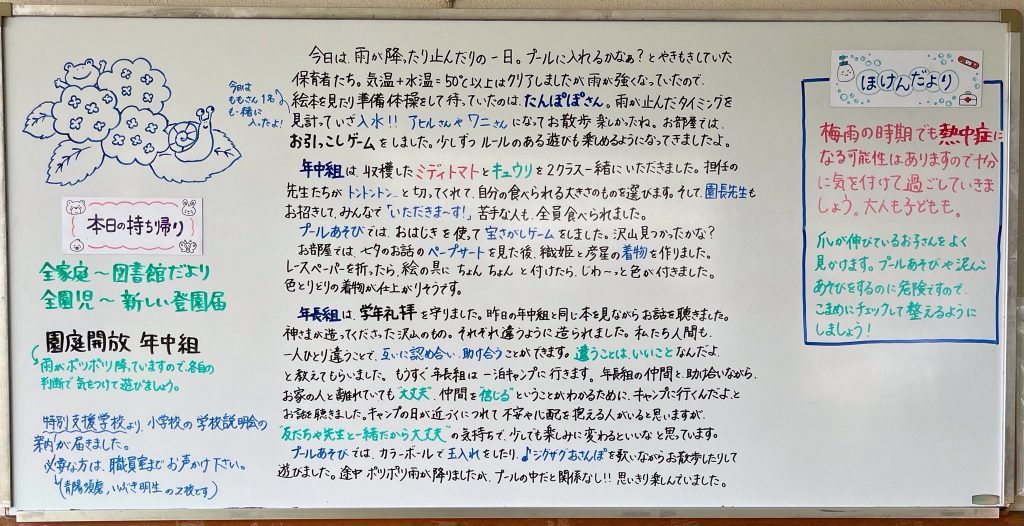 今日は
ももさん1名
も一緒に
入ったよ!
本日の持ち帰り
全家庭〜図書館だより
全園児〜新しい登園届
園庭開放 年中組
雨がポツポツ降っていますので、各自の
判断で気をつけて遊びましょう。
特別支援学校より、小学校の学校説明会の
案内が届きました。
必要な方は、職員室までお声かけ下さい。
(青陽須磨、いぶき明生の2校です)
今日は、雨が降ったり止んだりの一日。プールに入れるかなぁ?とやきもきしていた
保育者たち。気温+水温=50℃以上はクリアしましたが雨が強くなっていたので、
絵本を見たり準備体操をして待っていたのは、たんぽぽさん。雨が止んだタイミングを
見計っていざ入水!! アヒルさんやワニさんになってお散歩楽しかったね。お部屋では、
お引っこしゲームをしました。少しずつルールのある遊びも楽しめるようになってきましたよ。
年中組は、収穫したミディトマトとキュウリを2クラス一緒にいただきました。担任の
先生たちがトントントン…と切ってくれて、自分の食べられる大きさのものを選びます。そして、園長先生も
お招きして、みんなで「いただきま〜す!」苦手な人も、全員食べられました。
プールあそびでは、おはじきを使って宝さがしゲームをしました。沢山見つかったかな?
お部屋では、七夕のお話のペープサートを見た後、織姫と彦星の着物を作りました。
レースペーパーを折ったら、絵の具にちょんちょんと付けたら、じわ〜っと色が付きました。
色とりどりの着物が仕上がりそうです。
年長組は、学年礼拝を守りました。昨日の年中組と同じ本を見ながらお話を聴きました。
神さまが造ってくださった沢山のもの。それぞれ違うように造られました。私たち人間も、
一人ひとり違うことで、互いに認め合い、助け合うことができます。違うことは、いいことなんだよ
と教えてもらいました。もうすぐ年長組は一泊キャンプに行きます。年長組の仲間と、助け合いながら、
お家の人と離れていても“大丈夫”、仲間を“信じる”ということがわかるために、キャンプに行くんだよ、と
お話を聴きました。キャンプの日が近づくにつれて不安や心配を抱える人がいると思いますが、
“友だちや先生と一緒だから大丈夫”の気持ちで、少しでも楽しみに変わるといいなと思っています。
プールあそびでは、カラーボールで玉入れをしたり、♪ジグザグおさんぽを歌いながらお散歩したりして
遊びました。途中ポツポツ雨が降りましたが、プールの中だと関係なし!!思いきり楽しんでいました。
ほけんだより
梅雨の時期でも熱中症に
なる可能性はありますので十分
に気を付けて過ごしていきま
しょう。大人も子どもも。
爪が伸びているお子さんをよく
見かけます。プールあそびや泥んこ
あそびをするのに危険ですので、
こまめにチェックして整えるように
しましょう!